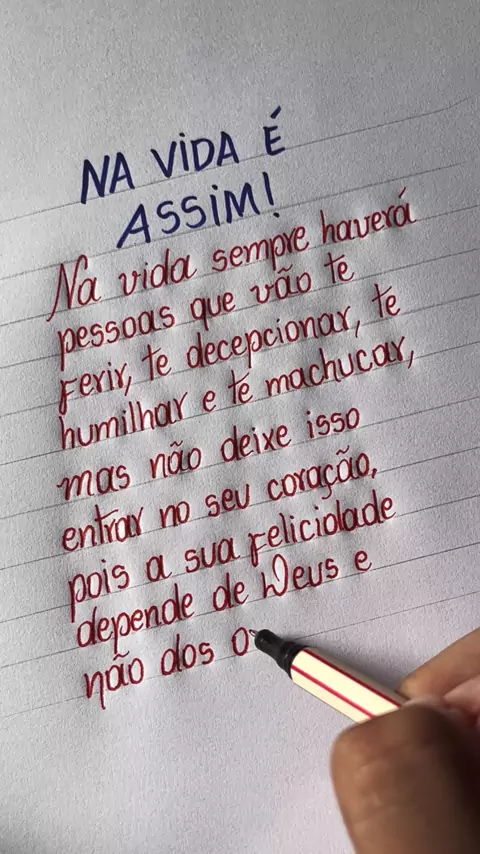 NA VIDA É
ASSIM!
Na vida sempre haverá
pessoas que vão te
ferir, te decepcionar, te
humilhar e te machucar,
mas não deixe isso
entrar no seu coração,
pois a sua felicidade
depende de Deus e
não dos o